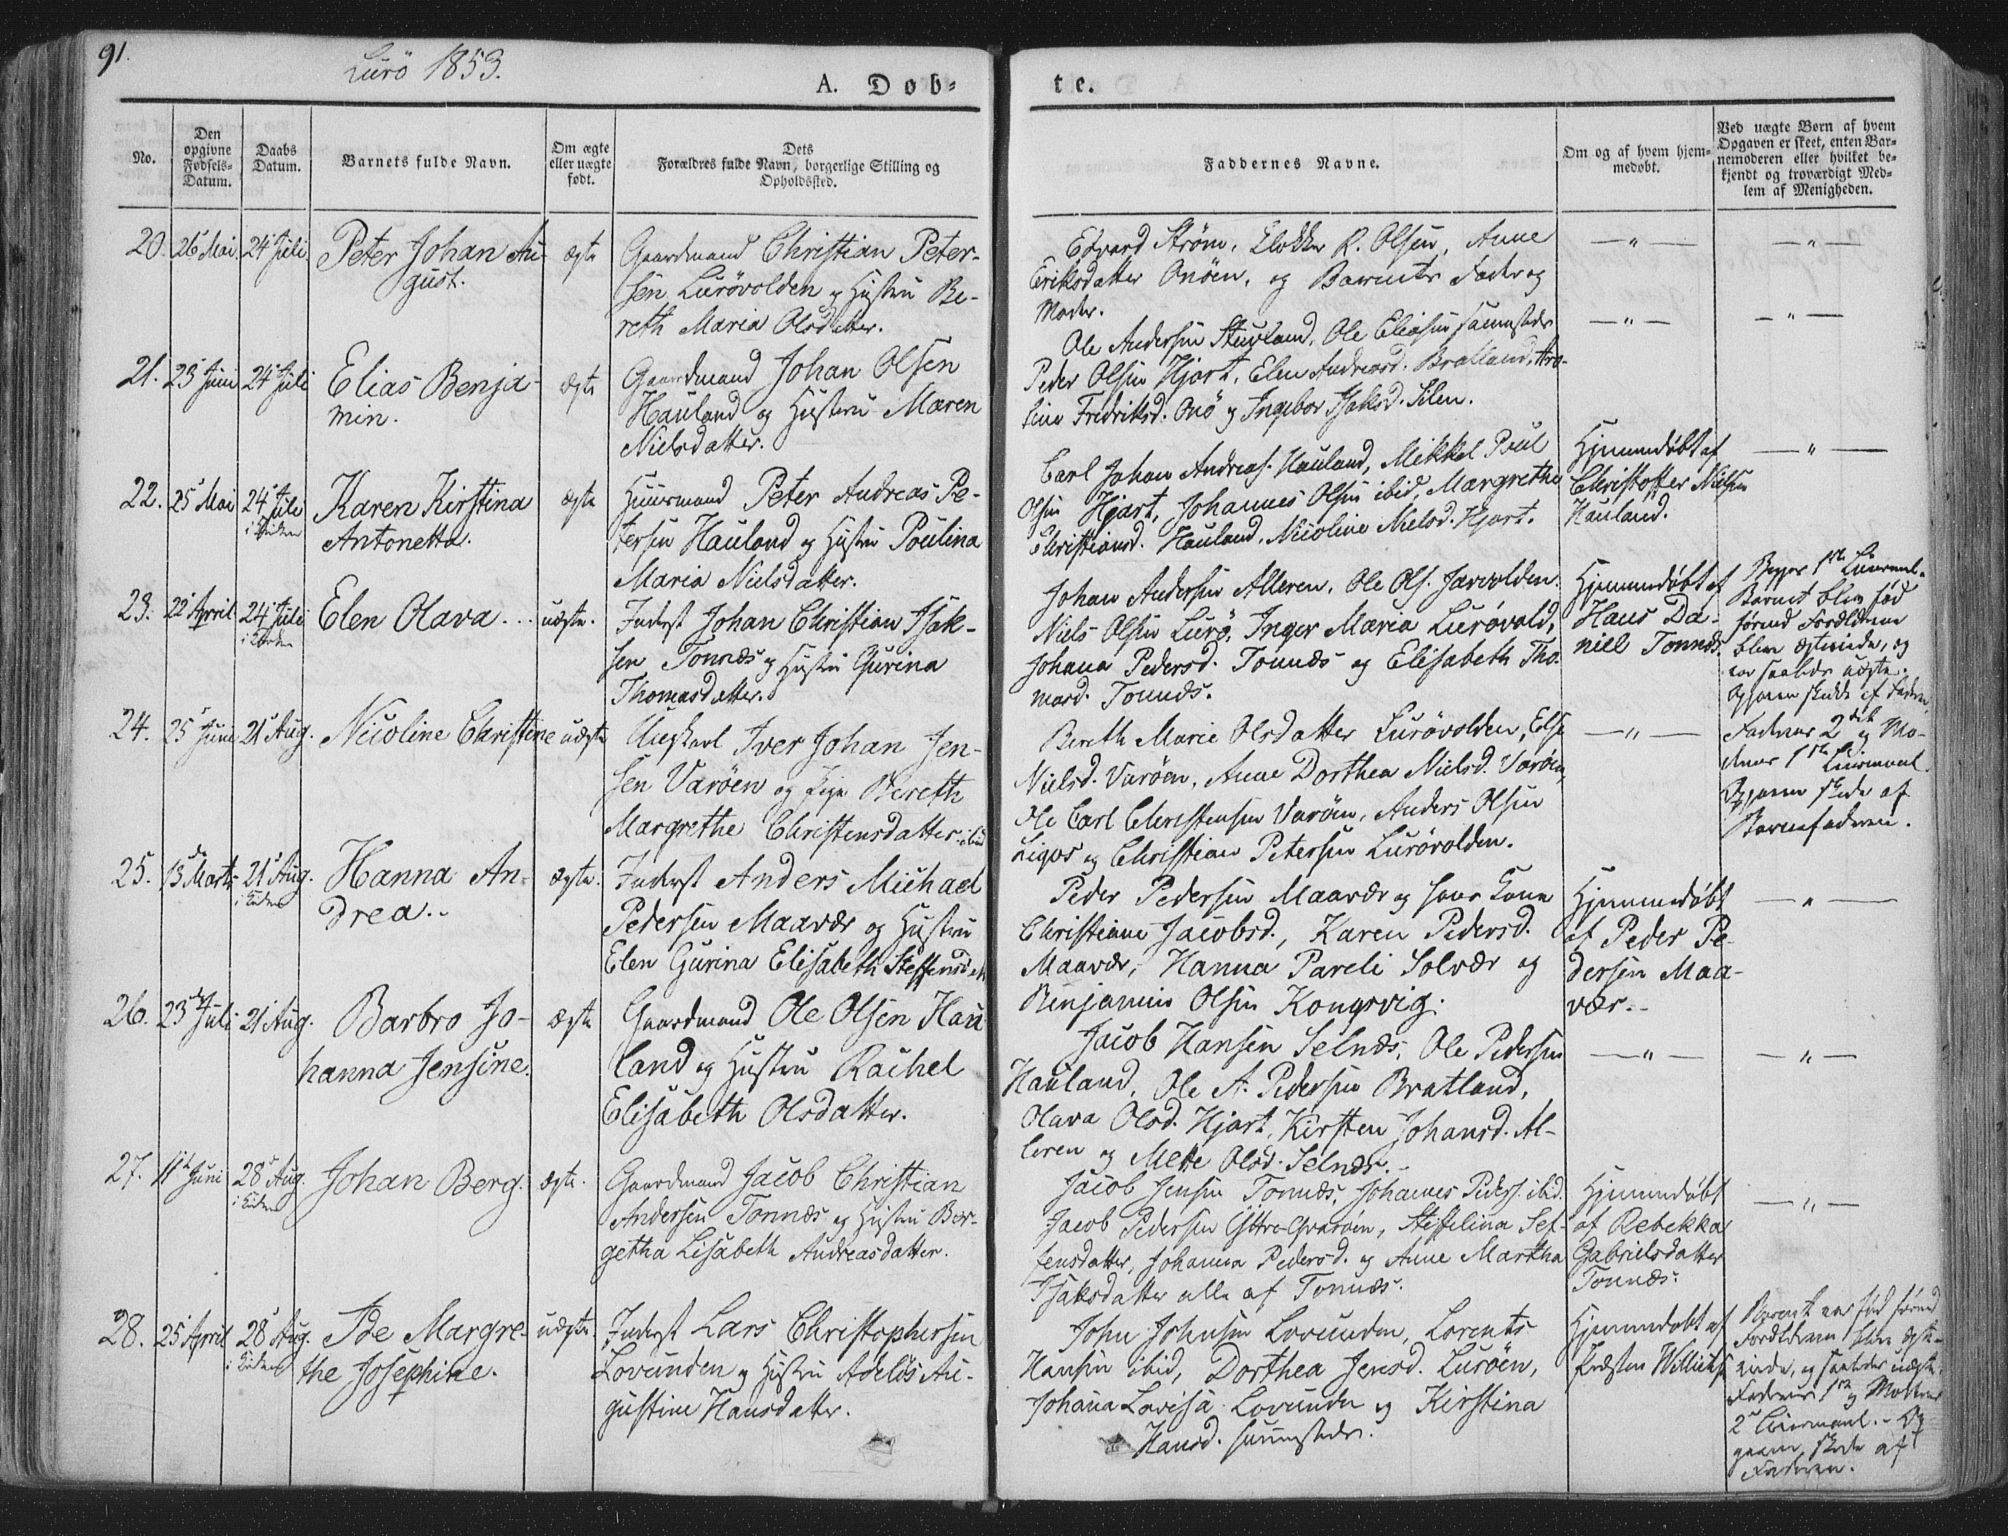 91.
Lurö 1853.
A. Døb-
te.
No.
Den opgivne Fødsels-Datum.
Daabs Datum.
Barnets fulde Navn.
Om ægte eller uægte født.
Dets Forældres fulde Navn, borgerlige Stilling og Opholdssted.
Faddernes Navne.
Om og af hvem hjemmedøbt.
Ved uægte Børn af hvem Opgaven er skeet, enten Barnemoderen eller hvilket bekjendt og troværdigt Medlem af Menigheden.
20. 26 Mai 24 Juli Peter Johan Au-
gust.
ægte
Gaardmand Christian Peter-
sen Lurövolden og Hustru Be-
reth Maria Olsdatter.
Edvard Strøm, Klokker R. Olsen, Anne
Eriksdatter Onöen, og Barnets Fader og
Moder.
— " — — " —
21. 23 Juni 24 Juli Elias Benja-
min.
ægte
Gaardmand Johan Olsen
Hauland og Hustru Maren
Nielsdatter.
Ole Andersen Stuvland, Ole Eliasen sammesteds
Peder Olsen Hjart, Elen Andreasd. Bratland,
Fredriksd. Onö og Ingebor Isaksd. Silen.
— " — — " —
22. 25 Mai 24 Juli Karen Kirstina
i Kirken
Antonetta.
ægte
Huusmand Peter Andreas Pe-
tersen Hauland og Hustru Poulina
Maria Nielsdatter.
Carl Johan Andreas. Hauland, Mikkel Poul
Olsen Hjart, Johannes Olsen ibid, Margrethe
Christiansd. Hauland, Nicoline Nielsd. Hjart.
Hjemmedøbt af
Christoffer Nielsen
Hauland.
— " —
23. 22 April 24 Juli Elen Olava...
i Kirken
uægte.
Inderst Johan Christian Isak-
sen Tonnæs og Hustru Gurina
Thomasdatter.
Johan Andersen Alleren, Ole Ols. Jarvolden.
Niels Olsen Lurö, Inger Maria Lurövold,
Johana Pedersd. Tonnæs og Elisabeth Tho-
masd. Tonnæs.
Hjemmedøbt af
Hans Da-
niel Tonnæs.
Begges 1ste Leiermaal.
Barnet blev fød
førend Forældrene
bleve ægteviede, og
er saaledes uægte.
Opgaven skede af Faderen.
24. 25 Juni 21 Aug. Nicoline Christine
uægte
Ungkarl Iver Johan Jen-
sen Varöen og Pige Bereth
Margrethe Christensdatter ibid
Bereth Marie Olsdatter Lurövolden, Else
Nielsd. Varöen, Anne Dorthea Nielsd. Varöen,
Ole Carl Christensen Varöen, Anders Olsen
Ligos og Christian Petersen Lurövolden.
— " —
Faderens 2det og Mo-
derens 1ste Leiermaal.
Opgaven skede af
Barnefaderen.
25. 13 Marts 21 Aug. Hanna An-
i Kirken
drea..
ægte.
Inderst Anders Michael
Pedersen Maavær og Hustru
Elen Gurina Elisabeth Steffensdatt
Peder Pedersen Maavær og hans Kone
Christiane Jacobsd., Karen Pedersd.
Maavær, Hanna Pareli Solvær og
Benjamin Olsen Kongsvig.
Hjemmedøbt
af Peder Pe-
dersen Maa-
vær..
— " —
26. 23 Juli 21 Aug. Barbro Jo-
hanna Jensine.
ægte
Gaardmand Ole Olsen Hau
land og Hustru Rachel
Elisabeth Olsdatter.
Jacob Hansen Selnæs, Ole Pedersen
Hauland, Ole A. Pedersen Bratland,
Olava Olsd. Hjart, Kirsten Johansd. Al-
leren og Mette Olsd. Selnæs.
— " — — " —
27. 11te Juni 28 Aug. Johan Berg.
i Kirken
ægte.
Gaardmand Jacob Christian
Andersen Tonnæs og Hustru Ber-
getha Lisabeth Andreasdatter.
Jacob Jensen Tonnæs, Johannes Peders. ibid.
Jacob Pedersen Yttre-Qvaröen, Steffelina Stef-
fensdatter, Johanna Pedersd. og Anne Martha
Isaksdatter alle af Tonnæs.
Hjemmedøbt
af Rebekka
Gabrielsdatter
Tonnæs.
— " —
28. 25 April 28 Aug. Ide Margre-
i Kirken
the Josephine.
uægte.
Inderst Lars Christophersen
Lovunden og Hustru Adelös Au-
gustine Hansdatter.
John Johnsen Lovunden, Lorents
Hansen ibid, Dorthea Jensd. Luröen,
Johana Lovisa Lovunden og Kirstina
Hansd. sammesteds.
Hjemmedøbt af
Præsten
Barnet er fød førend
Forældrene bleve ægte-
viede, og saaledes uægte.
Faderens 1ste og Moderens
2det Leiermaal. - Op
gaven skede af
Faderen.